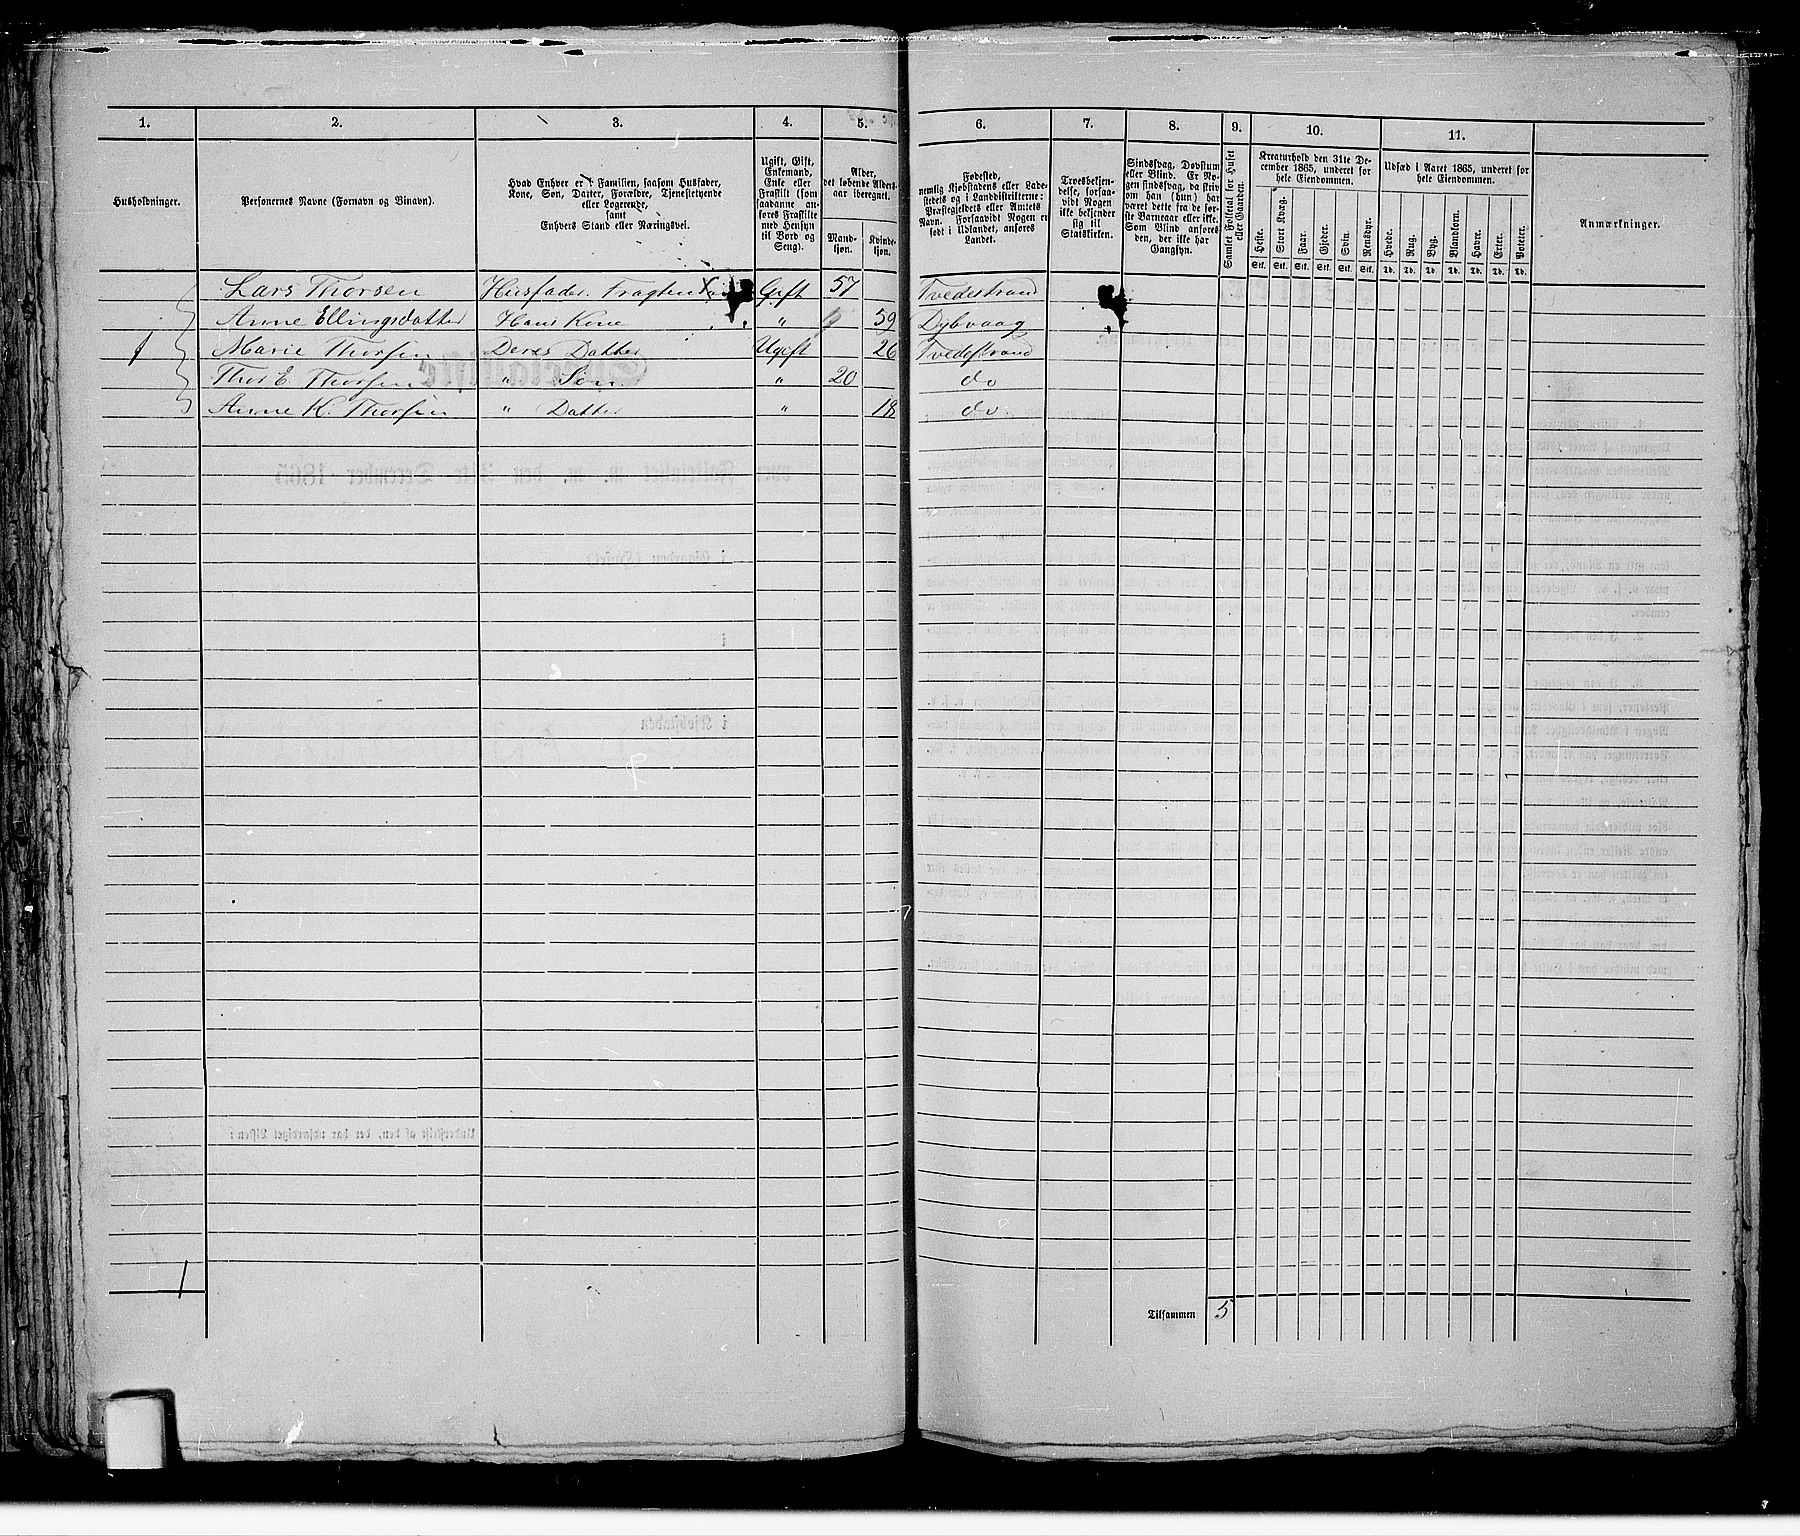 1. 2. 3. 4. 5. 6. 7. 8. 9. 10. 11.
Husholdninger.
Personernes Navne (Fornavn og Binavn).
Hvad Enhver er i Familien, saasom Husfader,
Kone, Søn, Datter, Forældre, Tjenestetyende
eller Logerende,
samt
Enhvers Stand eller Næringsvei.
Ugift, Gift,
Enkemand,
Enke eller
Fraskilt (som
saadanne an-
føres Fraskilte
med Hensyn
til Bord og
Seng).
Alder,
det løbende Alders-
aar iberegnet.
Mand-
kjøn.
Kvinde-
kjøn.
Fødested,
nemlig Kjøbstadens eller Lade-
stedets og i Landdistrikterne:
Præstegjeldets eller Amtets
Navn. Forsaavidt Nogen er
født i Udlandet, anføres
Landet.
Troesbekjen-
delse, forsaa-
vidt Nogen
ikke bekjender
sig til
Statskirken.
Sindssvag, Døvstum
eller Blind. Er No-
gen sindssvag, da skriv
om han (hun) har
været dette fra de før-
ste Barneaar eller ikke.
Som Blind anføres
den, der ikke har
Gangsyn.
Samlet Folketal for Huset
eller Gaarden.
Kreaturhold den 31te De-
cember 1865, underet for
hele Eiendommen.
Heste. Stort Kvæg. Faar. Gjeder. Svin. Rensdyr.
Stk. Stk. Stk. Stk. Stk. Stk.
Udsæd i Aaret 1865, underet for
hele Eiendommen.
Hvede. Rug. Byg. Blandkorn. Havre. Erter. Poteter.
Td. Td. Td. Td. Td. Td. Td.
Anmærkninger.
Lars Thorsen Husfader. Gift 57 Tvedestrand
Anne Ellingsdatter Hans Kone " 59 Dybvaag
1 Marie Thorsen Deres Datter Ugift 26 Tvedestrand
Thor E. Thorsen " Søn " 20 do
Anne K. Thorsen " Datter " 18 do.
1
Tilsammen 5